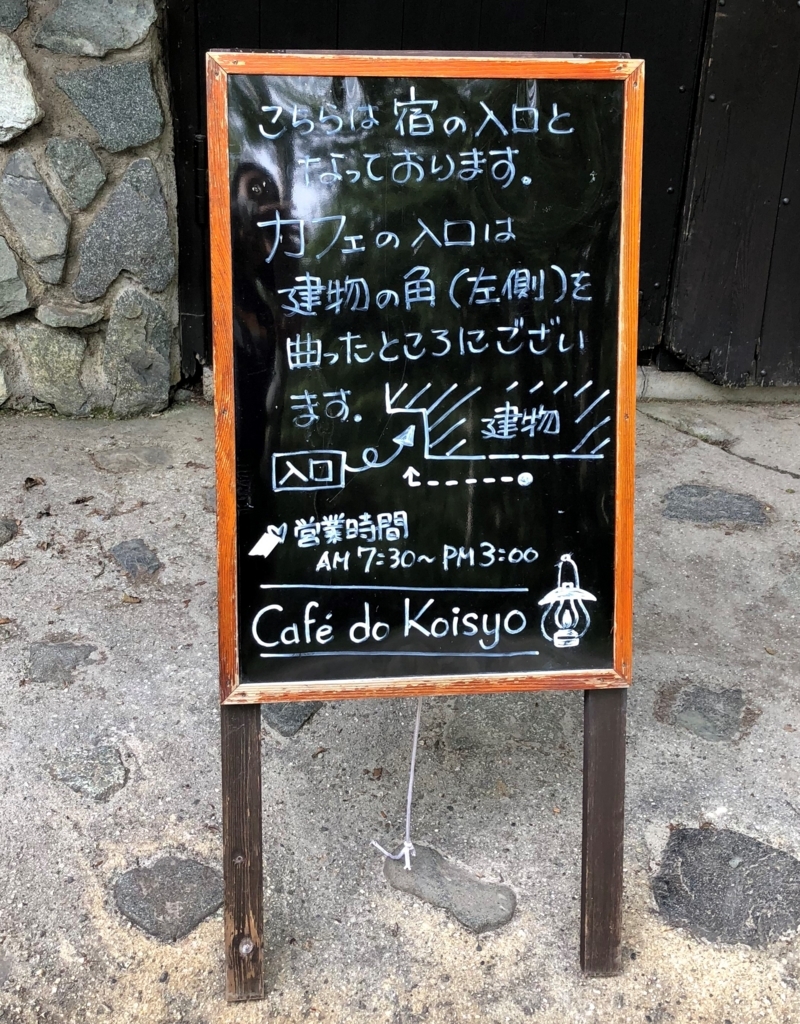 こちらは宿の入口と
なっております。
カフェの入口は
建物の角(左側)を
曲ったところにござい
ます。
建物
入口
営業時間
AM 7:30~PM 3:00
Café do Koisyo